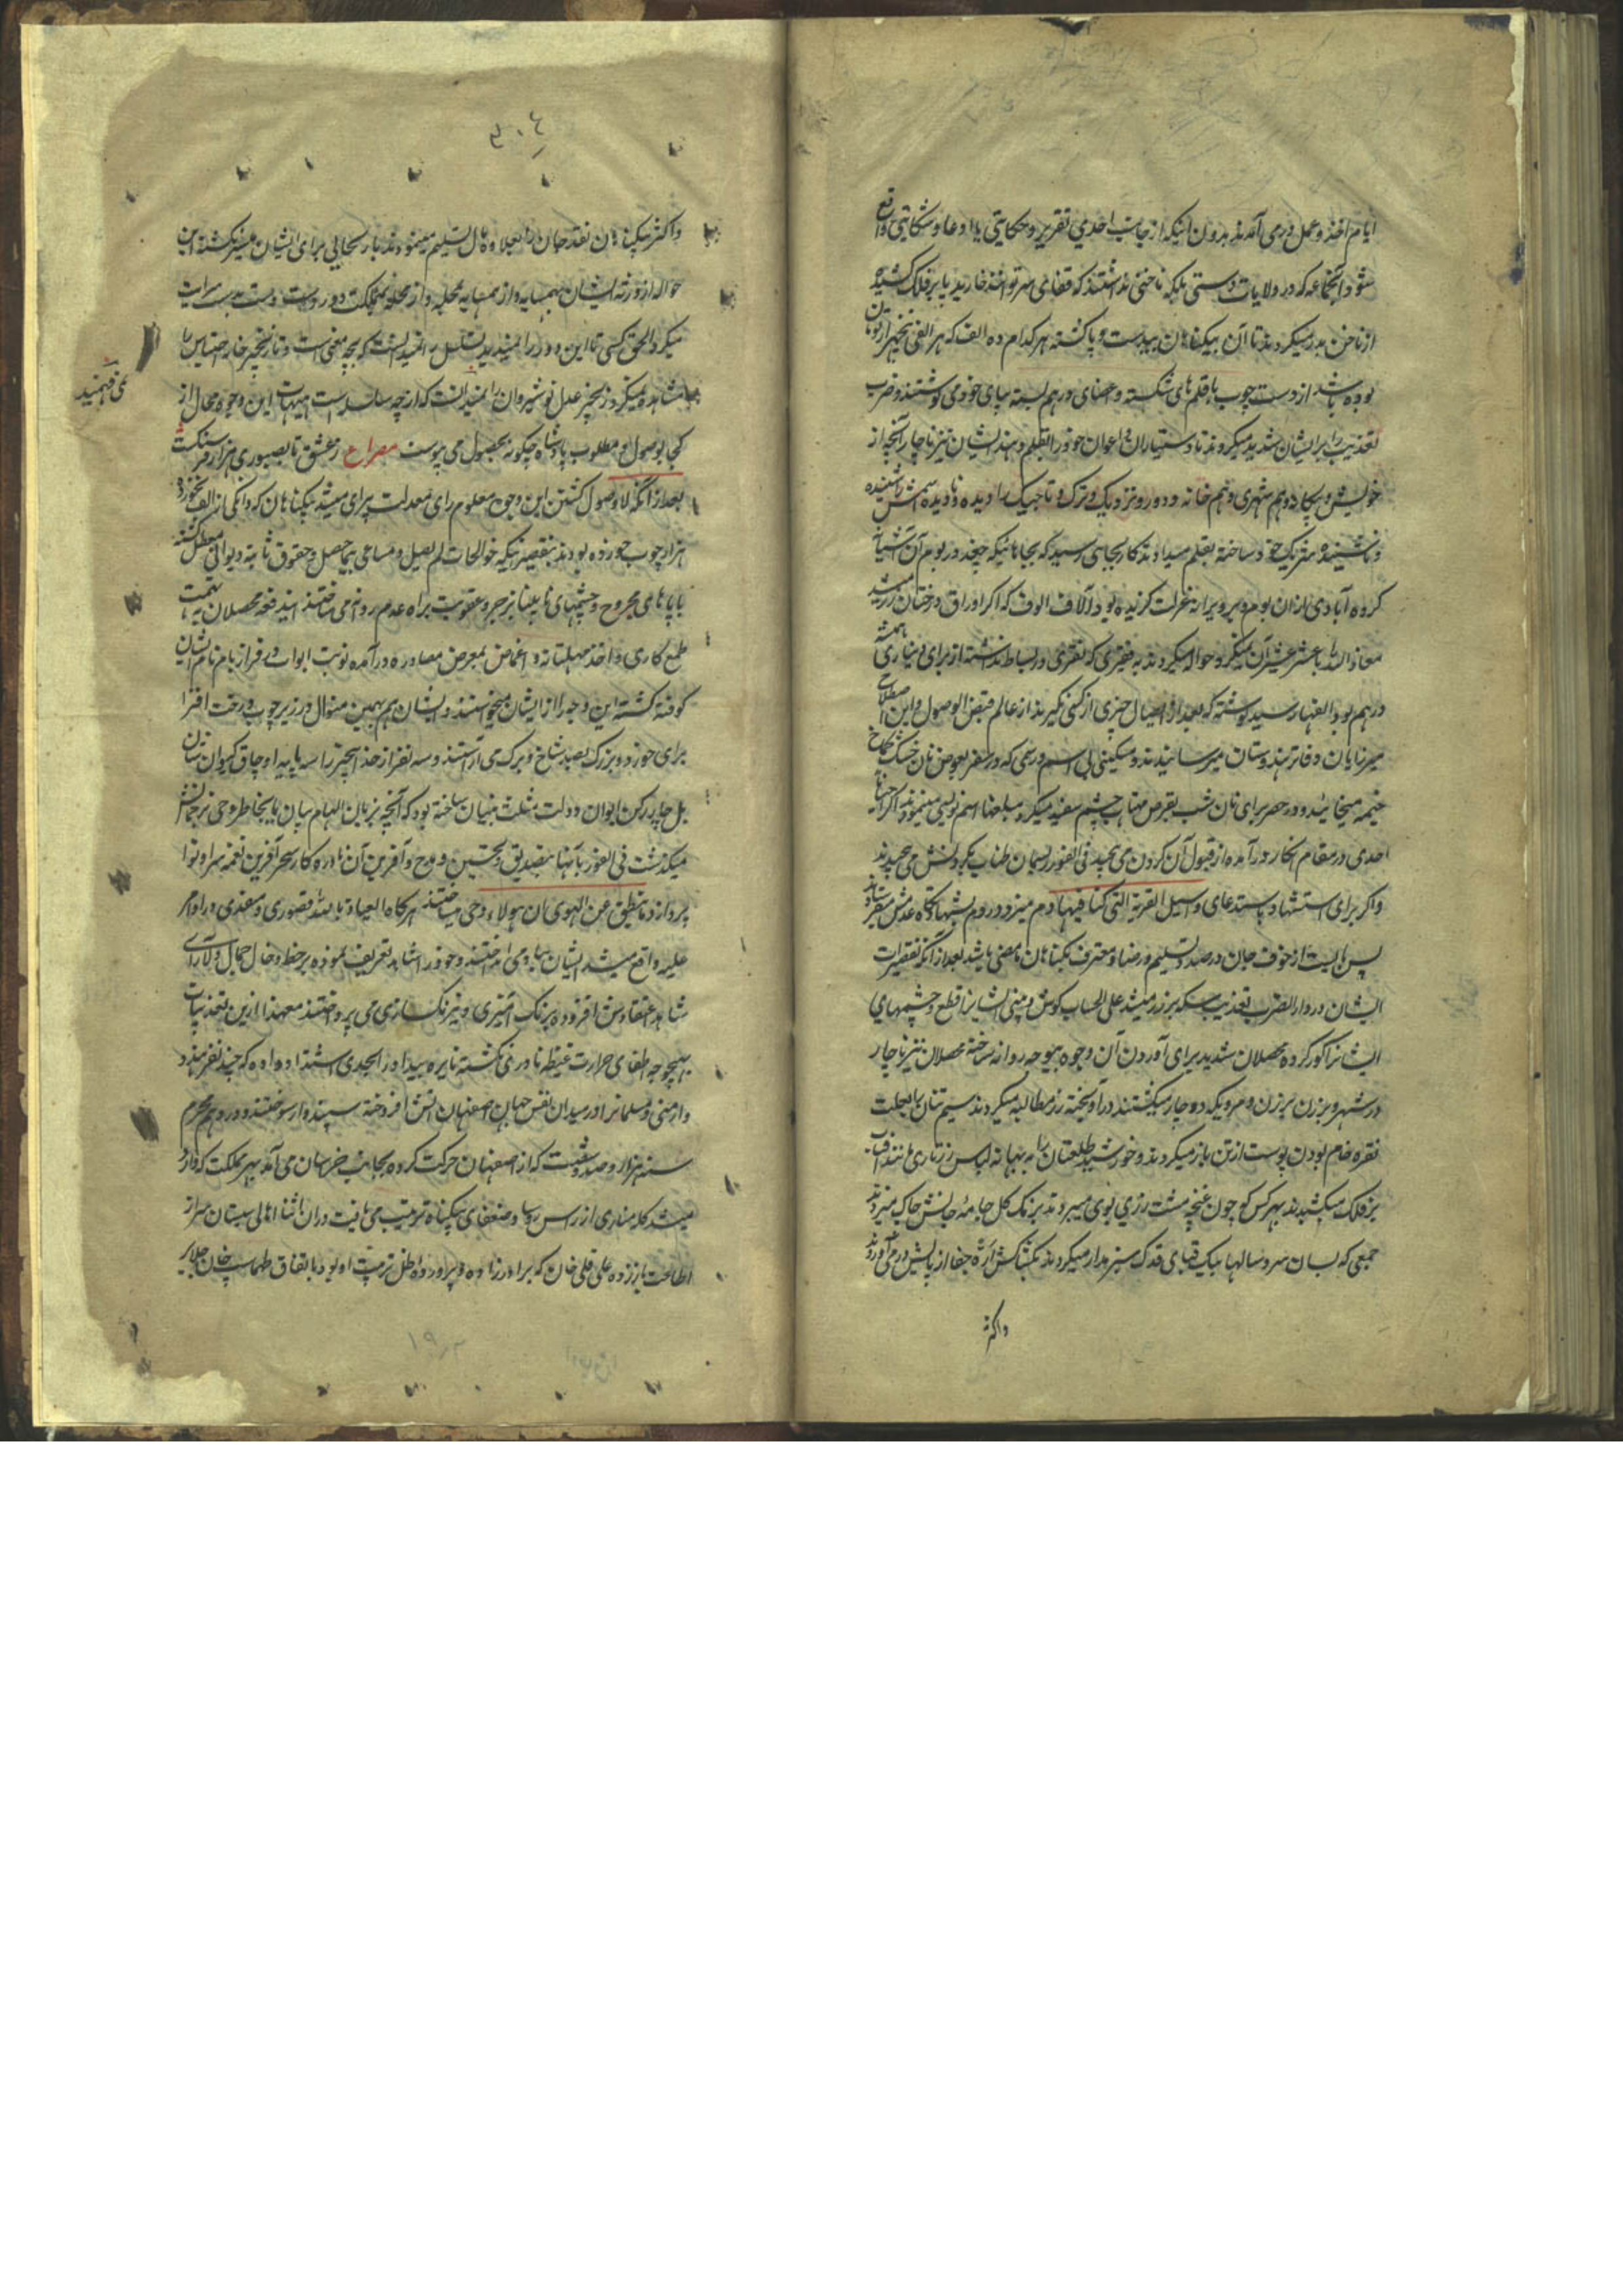 ایام اخذ و عمل درمی آمدند بدون اینکه از جانب احدی تقریر و حکایتی یا ادعا و شکایتی واقع
شود انجماعه که در ولایات دستی بلکه ناخنی نداشتند که قفای سر توانند خارید پا بر فلک کشیده
از ناخن بدر میکردند تا آن بیکناهان بیدست و پا کشته هر کدام ده الف که هر الفی پنجهزار تومان
بوده باشد از دست چوب با قلم های شکسته و اعضای درهم بسته بپای خود می نوشتند و ضرب
تعذیب را بر ایشان شدید میکردند تا دستیاران و اعوان خود را بقلم دهند ایشان نیز ناچار آنچه از
خویش و بیکانه و هم شهری و هم خانه و دور و نزدیک و ترک و تاجیک را دیده و نادیده اسمش را شنیده
و نشنیده بقلم میدادند کار بجائی رسید که بجاهائیکه چغد در بوم آن آشیانه
کروه آبادی ازان بوم و بر ویرانه عزلت کزیده بود آلاف الوف که اکر اوراق درختان زر میشد
معاذ الله با عشر عشیر آن نمیکرد حواله میکردند به فقیری که نقری در بساط نداشته از برای دیناری همیشه
درهم بود الفها رسید نوشته که بعد از ایصال چیزی از کسی نکیرند از عالم قبض الوصول و این اصطلاح
میرزایان دفاتر هندوستان میرسانیدند و مسکینی بی اسم و رسمی که در سفر بعوض نان خشک
خیمه میخائید و در حضر برای نان شب بقرص مهتاب چشم سفید میکرد مبلغها اسم نویسی مینمودند اکر احیانا
احدی در مقام انکار درآمده از قبول آن کردن می پیچید فی الفور ریسمان طناب بکردنش می پیچیدند
و اکر برای استشهاد باستدعای واسئل القریة التی کنا فیها دم میزد در دم بشهادتکاه عدمش میفرستادند
پس بایست از خوف جان در صدد تسلیم و رضا و معترف بکناهان ناممضی باشد بعد از آنکه تقصیرات
ایشان در دار الضرب تعذیب سکه بر زر میشد علی الحساب کوش و بینی ایشانرا قطع و چشمهای
ایشانرا کور کرده محصلان شدید برای آوردن آن وجوه بیوجه روانه ساخته محصلان نیز ناچار
در شهر و برزن بر زن و مرد یکه دوچار میکشتند درآویخته زر مطالبه میکردند سیم تنان را بعلت
نقره خام بودن پوست از تن باز میکردند و خورشید طلعتان را به بهانه لباس زرتاری مانند آفتاب
بر فلک میکشیدند بهر کس کو چون غنچه مشت زری بوی میبردند برنک کل جامه جانش چاک میزدند
جمعی که بسان سرو سالها بیک قبای قدک سبز مدار میکردند بکشاکش اره جفا از پایش درمی آوردند
واکثر
٣٠٤
واکثر بیکناهان نقد جان را بعلاوه مال تسلیم مینمودند باز رهائی برای ایشان میسر نکشته این
حواله از ورثه ایشان بهمسایه و از همسایه بمحله و از محله بمملکت دور دست دست بدست سرایت
میکرد الحق کسی تا این دور را نمیدید تسلسل را نمیدانست که بچه معنی است و تا زنجیر خانه احتیاس را
مشاهده نمیکرد زنجیر عدل نوشیروان را نمیدانست که از چه سلسله است هیهات این وجوه محال از
کجا بوصول و مطلوب پادشاه چکونه بحصول می پیوست مصراع ز عشق تا بصبوری هزار فرسنکست
می فهمید
بعد از آنکه لا وصول کشتن این وجوه معلوم رای معدلت پیرای میشد بیکناهان که دانکی از الف نخورده
هزار چوب خورده بودند بتقصیر اینکه حوالجات لم یصل و مساعی بیحاصل و حقوق ثابته دیوانی معطل کشته
با پاهای مجروح و چشمهای نابینا بزجر و عقوبت براه عدم روانه می ساختند ایندفعه محصلان به تهمت
طمع کاری و اخذ مهلتانه و اغماض بمعرض مصادره درآمده نوبت ابواب بر فراز بام نام ایشان
کوفته کشته این وجه را از ایشان میخواستند و ایشان هم بهمین منوال در زیر چوب درخت افترا
برای خورد و بزرک بصد شاخ و برک می آراستند و سه نفر از خدا بیخبر را سه پایه اوجاق کیوان نشان
بل چار رکن ایوان دولت مثلث بنیان ساخته بود که آنچه بزبان الهام بیان یا بخاطر وحی ترجمانش
میکذشت فی الفور بآنها بتصدیق و تحسین و مدح و آفرین آن نادره کار سحرآفرین نغمه سرا و نوا
پرداز و ما ینطق عن الهوی ان هو الا وحی میساختند هرکاه العیاذ بالله قصوری و معذری در اوامر
علیه واقع میشد ایشان پیاده می انداختند و خود را شاهد تعریف نموده بر خط و خال جمال دلارای
شاهد اعتقادش افزوده برنک آمیزی و نیرنک سازی می پرداختند معهذا ازین تعذیبات
بهیچوجه اطفای حرارت غیظ نادری نکشته نایره بیداد را بحدی اشتداد داده که چند نفر هنود
و ارمنی و مسلمانرا در میدان نقش جهان اصفهان آتش افروخته سپندوار سوختند و در دهم محرم
سنه هزار و صد و شصت که از اصفهان حرکت کرده بجانب خراسان می آمد بهر مملکت که وارد
میشد کله مناری از رؤس رؤسا و ضعفای بیکناه ترتیب می یافت دران اثنا اهالی سیستان سر از
اطاعت باز زده علی قلی خان که برادرزاده و پرورده ظل تربیت او بود باتفاق طهماسب خان جلایر
١٩٢